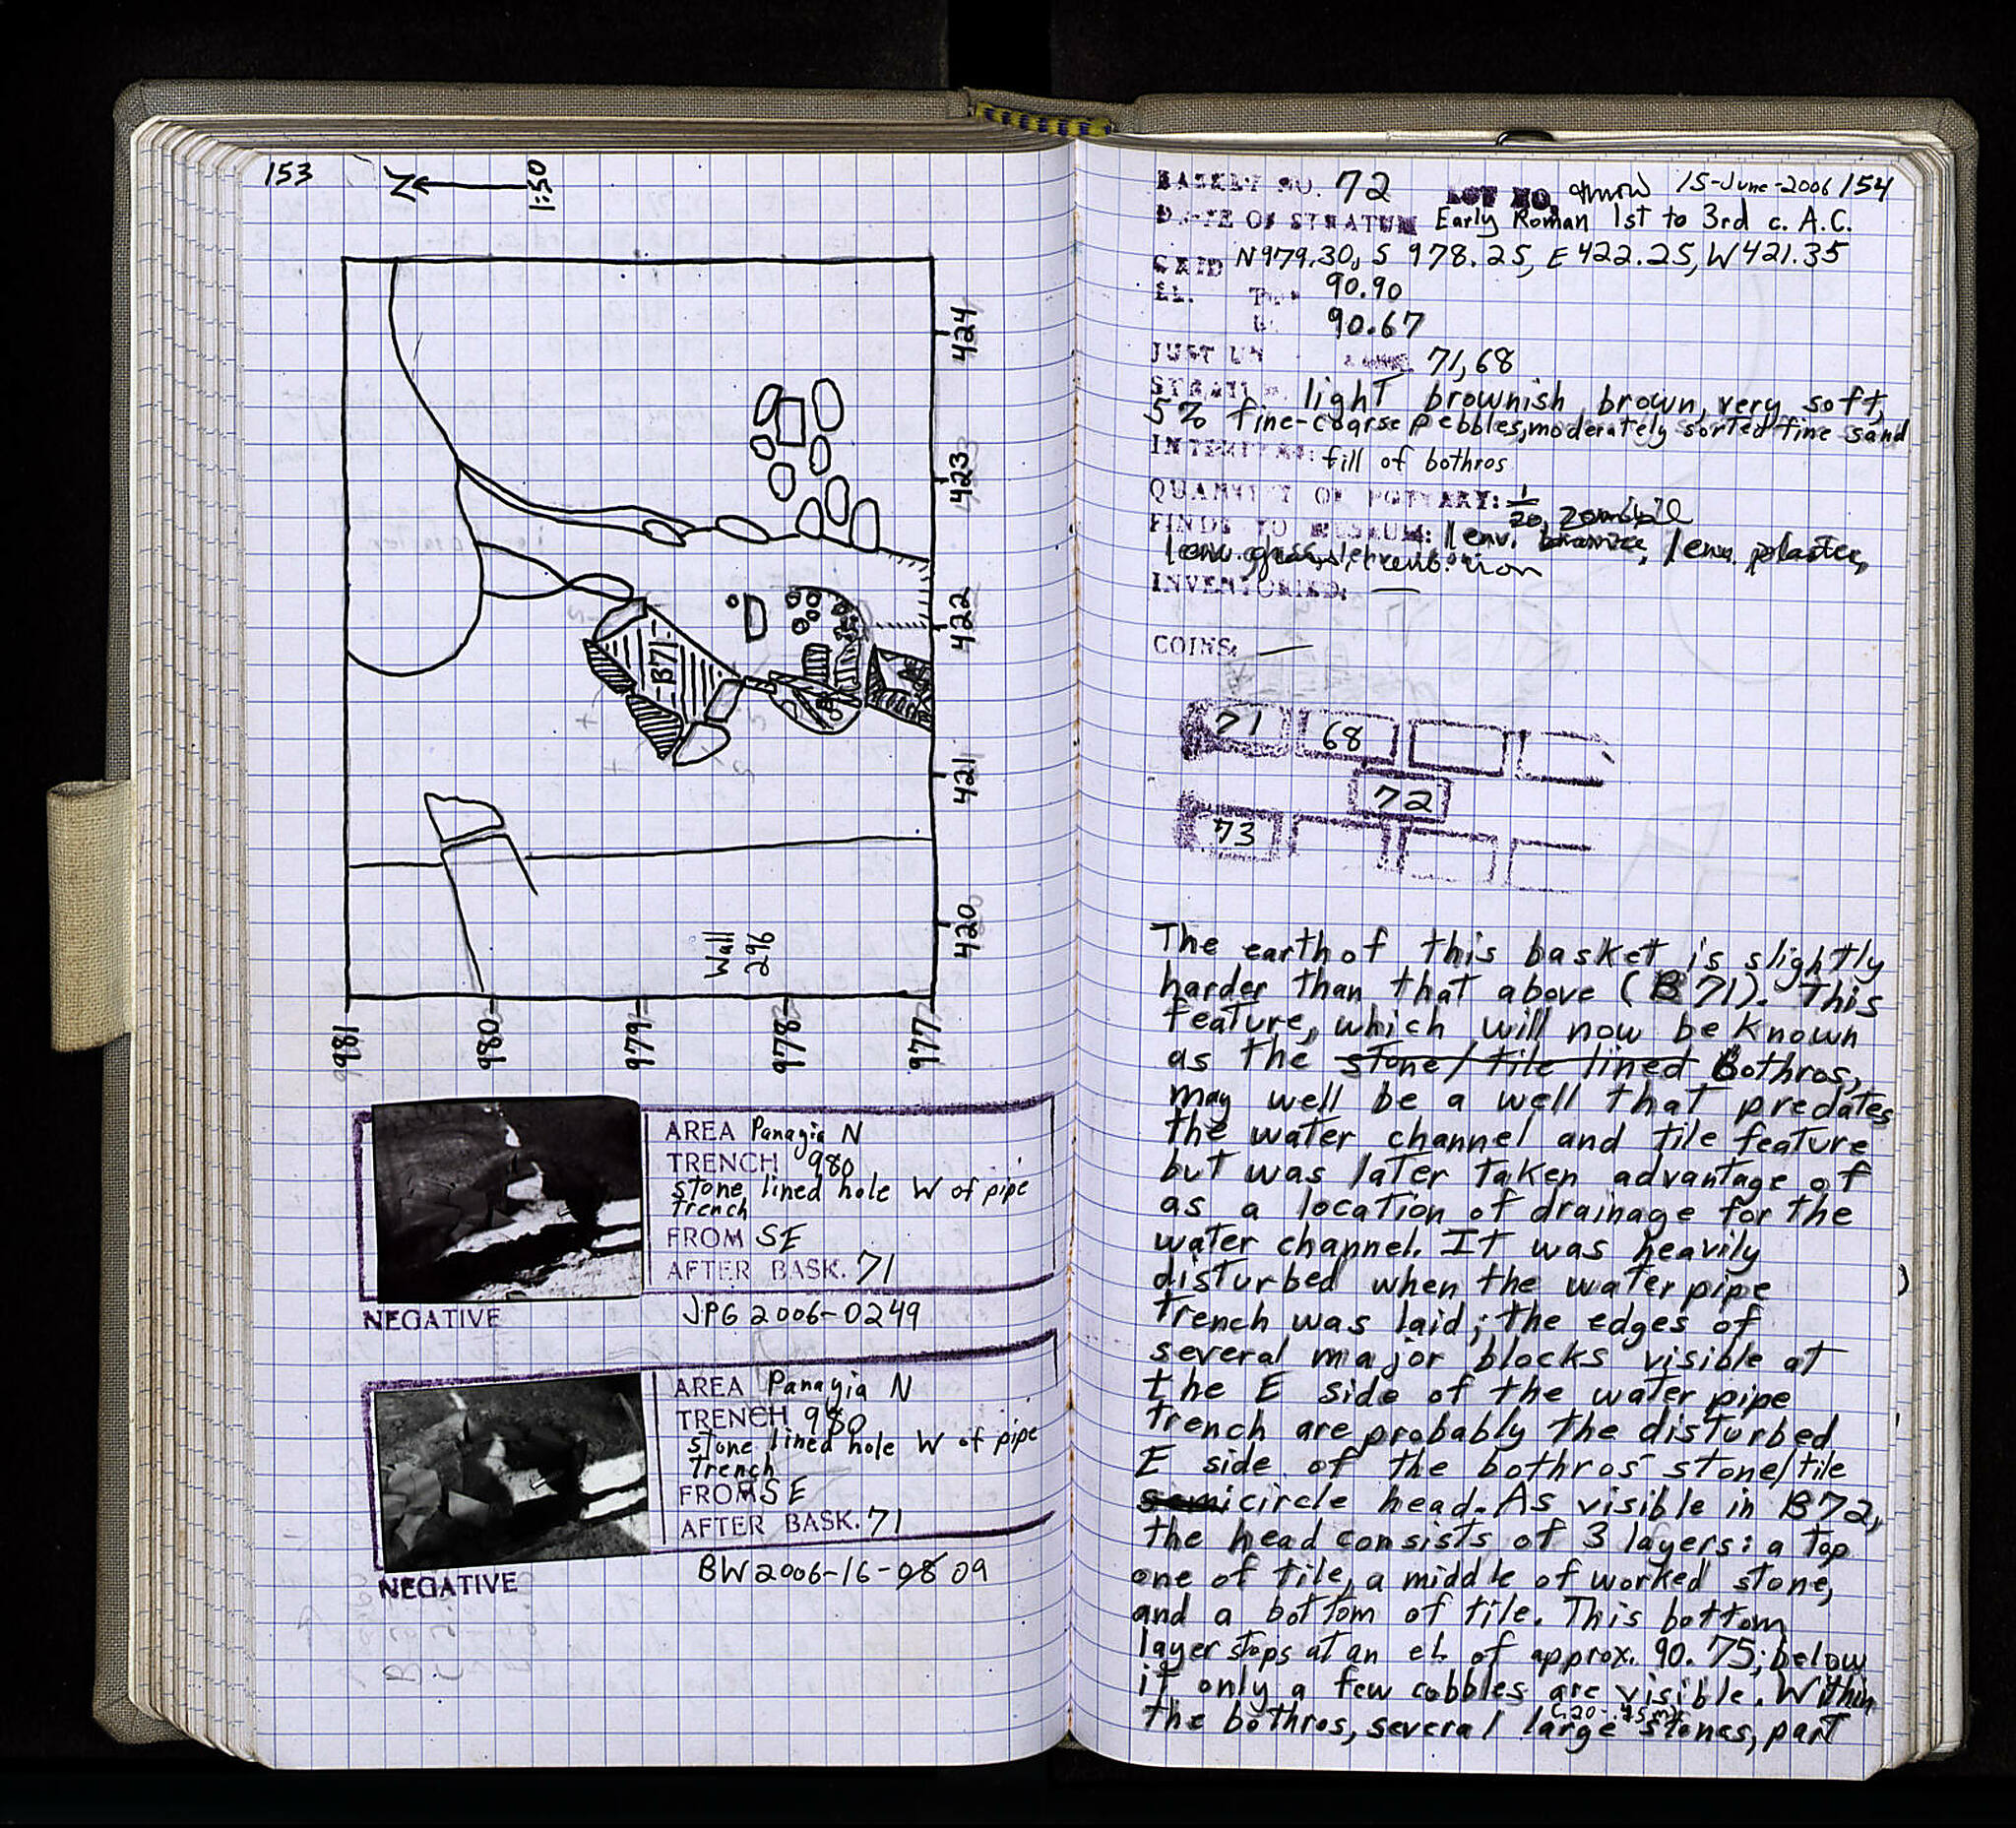 153
N
1:50
424
423
422
421
420
B71
Wall
296
981
980
979
978
977
AREA Panagia N
TRENCH 980
stone lined hole W of pipe
trench
FROM SE
AFTER BASK. 71
NEGATIVE
JPG 2006-0249
AREA Panayia N
TRENCH 980
stone lined hole W of pipe
trench
FROM SE
AFTER BASK. 71
NEGATIVE
BW 2006-16-08 09
BASKET NO. 72 LOT NO. throw 15-June-2006 154
DATE OF STRATUM Early Roman 1st to 3rd c. A.C.
GRID N979.30, S 978.25, E 422.25, W 421.35
EL. Top 90.90
90.67
JUST UN 71, 68
STRATUM light brownish brown, very soft,
5% fine-coarse pebbles, moderately sorted fine sand
fill of bothros
QUANTITY OF POTTERY: 1/20,
FINDS TO MUSEUM: 1 env. 1 env. plaster,
1 env. glass, iron
INVENTORIED: —
COINS: —
71 68
72
73
The earth of this basket is slightly
harder than that above (B 71). This
feature, which will now be known
as the stone/tile lined Bothros,
may well be a well that predates
the water channel and tile feature
but was later taken advantage of
as a location of drainage for the
water channel. It was heavily
disturbed when the water pipe
trench was laid; the edges of
several major blocks visible at
the E side of the water pipe
trench are probably the disturbed
E side of the bothros stone/tile
semicircle head. As visible in B72,
the head consists of 3 layers: a top
one of tile, a middle of worked stone,
and a bottom of tile. This bottom
layer stops at an el. of approx. 90.75; below
it only a few cobbles are visible. Within
the bothros, several large stones, part